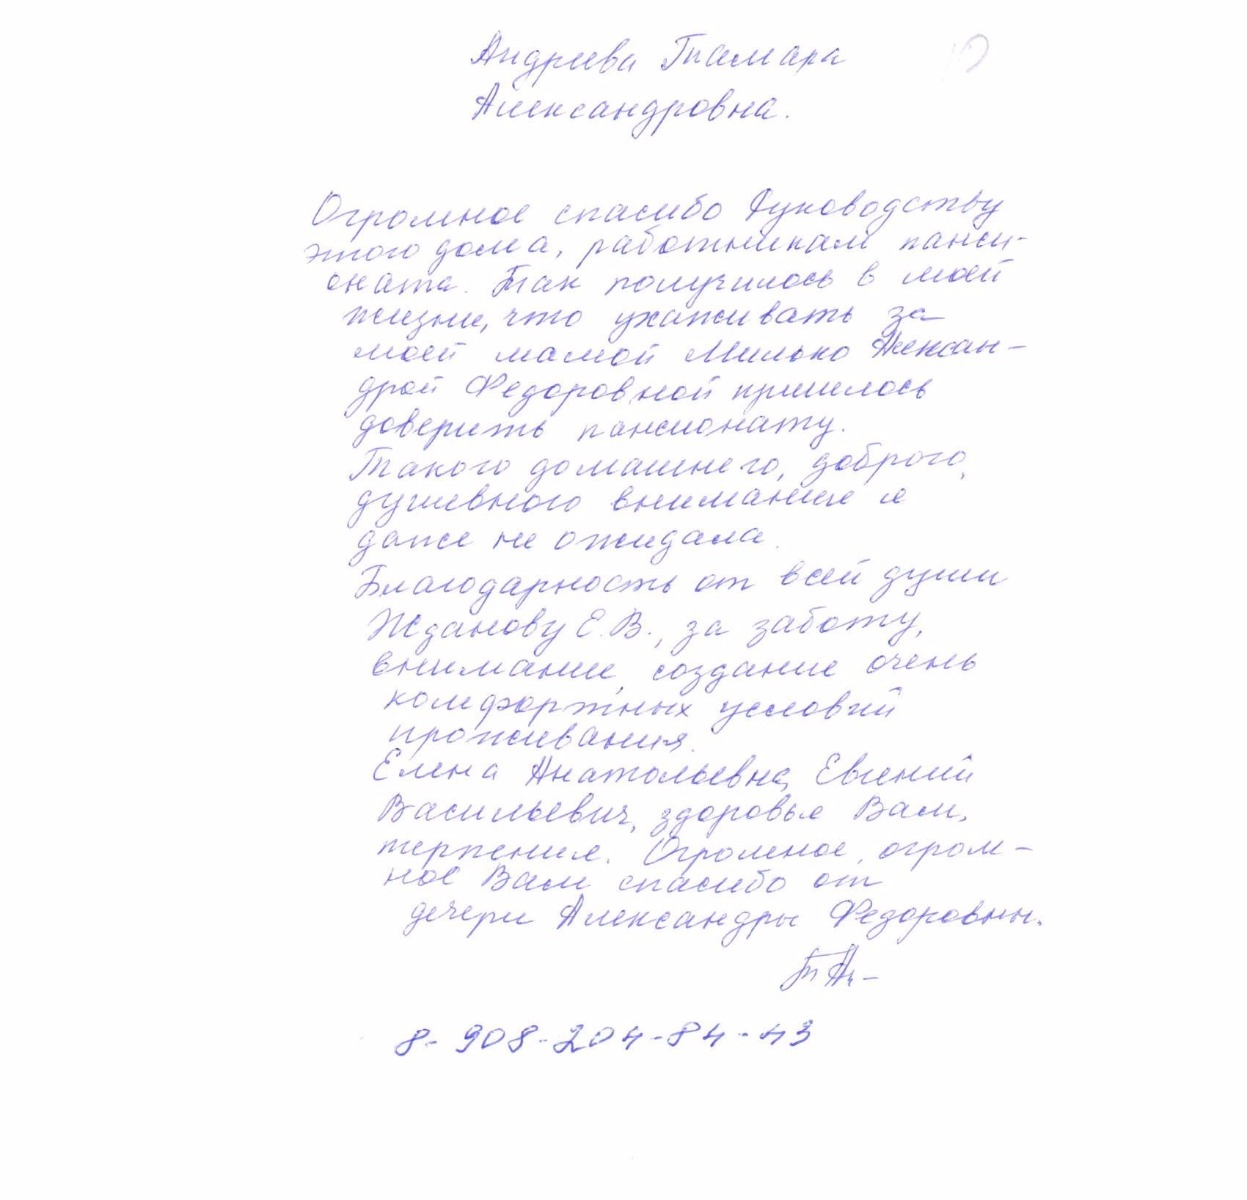 Андреева Тамара
Александровна.
Огромное спасибо Руководству
этого дома, работникам панси-
оната. Так получилось в моей
жизни, что ухаживать за
моей мамой Милько Алексан-
дрой Федоровной пришлось
доверить пансионату.
Такого домашнего, доброго,
душевного внимания я
даже не ожидала.
Благодарность от всей души
Жданову Е.В., за заботу,
внимание, создание очень
комфортных условий
проживания.
Елена Анатольевна, Евгений
Васильевич, здоровья Вам,
терпения. Огромное, огром-
ное Вам спасибо от
дочери Александры Федоровны.
8-908-204-84-43